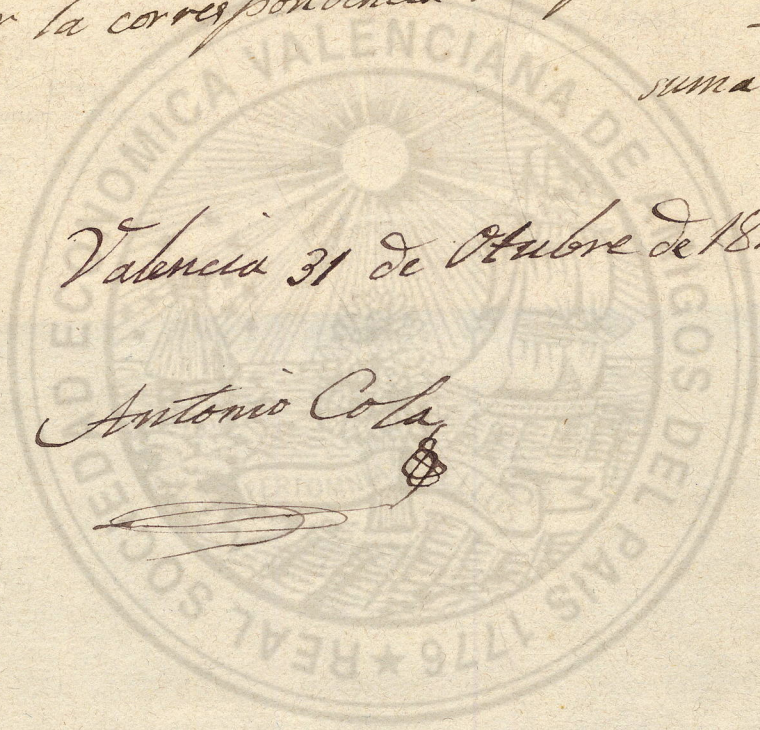 la correspondencia
suma
Valencia 31 de Otubre de 18
Antonio Cola
REAL SOCIEDAD ECONOMICA VALENCIANA DE AMIGOS DEL PAIS 1776 ★